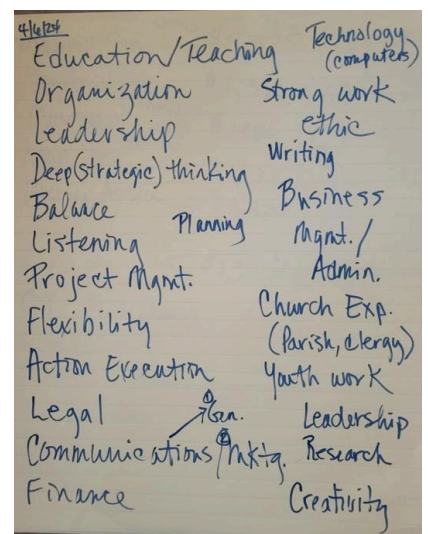 4/6/24
Education/Teaching
Organization
Leadership
Deep(strategic) thinking
Balance
Planning
Listening
Project Mgmt.
Flexibility
Action Execution
Legal
① Gen.
Communications / ② Mktg.
Finance
Technology
(computers)
Strong work
ethic
Writing
Business
Mgmt./
Admin.
Church Exp.
(Parish, clergy)
Youth work
Leadership
Research
Creativity